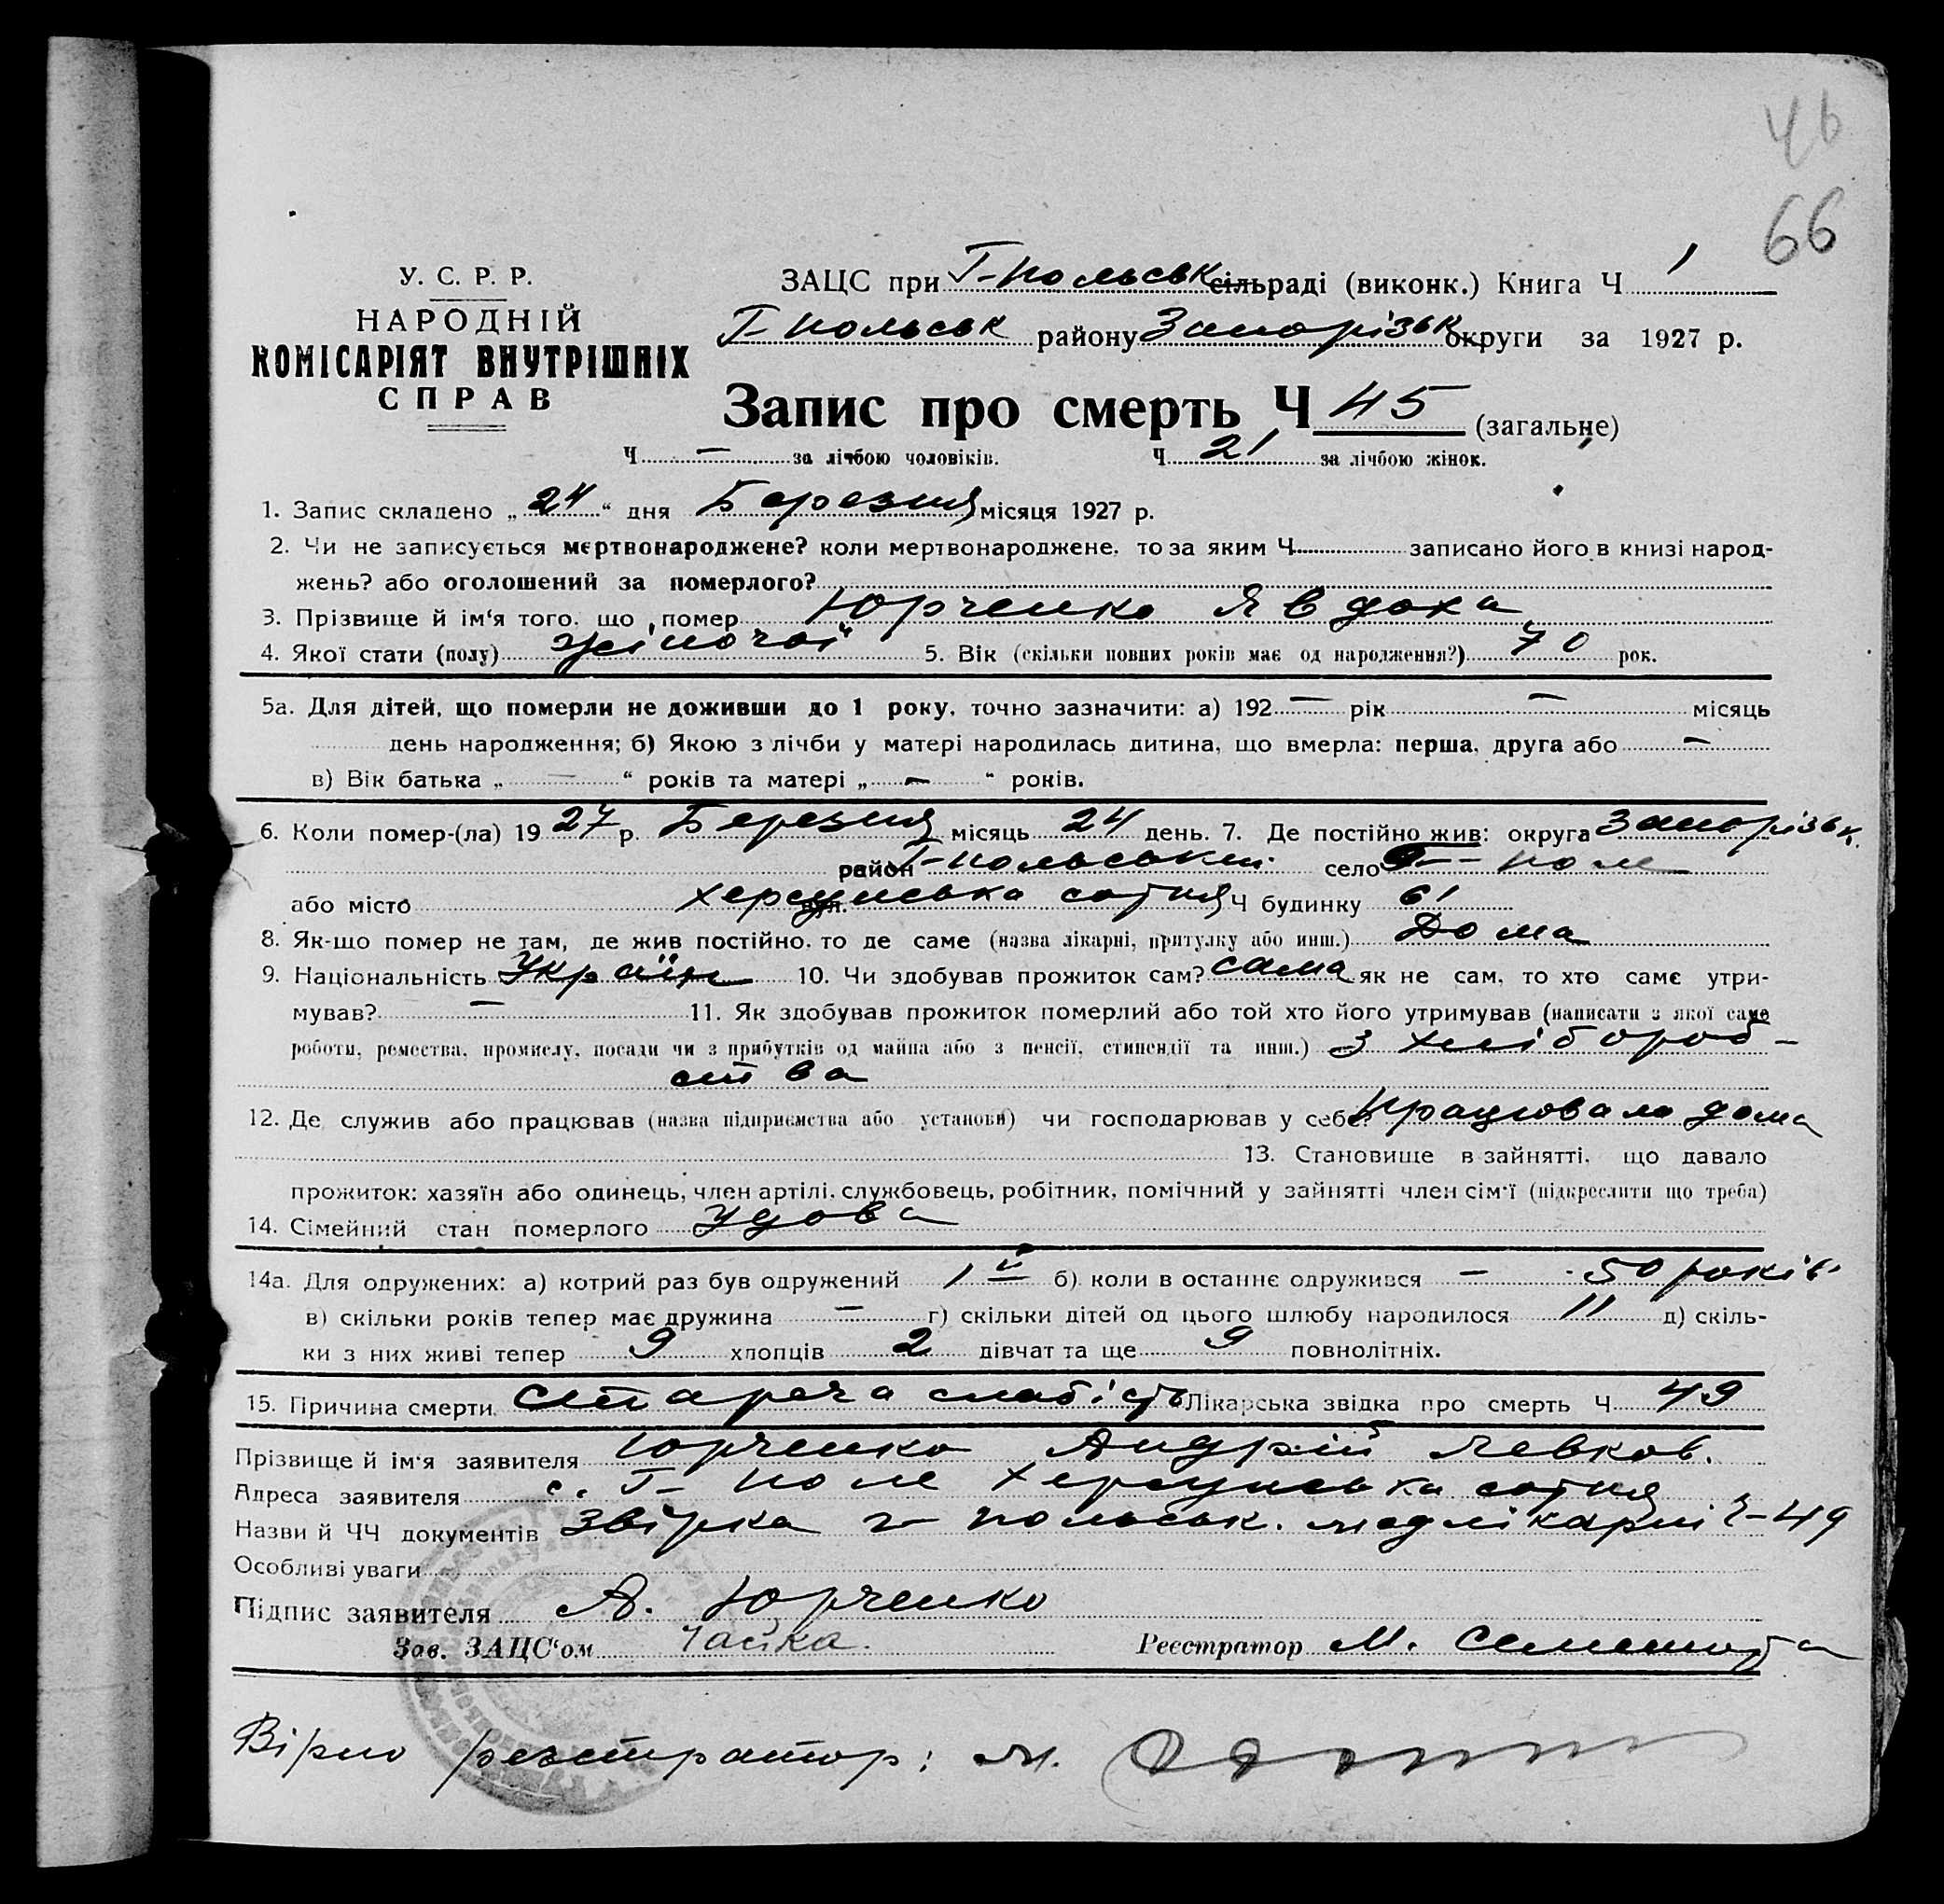 46
66
У. С. Р. Р.
НАРОДНІЙ
КОМІСАРІЯТ ВНУТРІШНІХ
СПРАВ
ЗАЦС при Г-Польськ сільраді (виконк.) Книга Ч 1
Г-Польськ району Запорізьк округи за 1927 р.
Запис про смерть Ч 45 (загальне)
Ч — за лічбою чоловіків. Ч 21 за лічбою жінок.
1. Запис складено „24“ дня Березня місяця 1927 р.
2. Чи не записується мертвонароджене? коли мертвонароджене, то за яким Ч записано його в книзі народ-
жень? або оголошений за померлого?
3. Прізвище й ім'я того, що помер Юрченко Явдоха
4. Якої стати (полу) жіночої 5. Вік (скільки повних років має од народження?) 70 рок.
5а. Для дітей, що померли не доживши до 1 року, точно зазначити: а) 192 — рік — місяць
день народження; б) Якою з лічби у матері народилась дитина, що вмерла: перша, друга або —
в) Вік батька „ — “ років та матері „ — “ років.
6. Коли помер-(ла) 1927 р. Березня місяць 24 день. 7. Де постійно жив: округа Запорізьк.
район Г-Польський село Г-Поле
або місто вул. Херсунська сотня Ч будинку 61
8. Як-що помер не там, де жив постійно, то де саме (назва лікарні, притулку або инш.) Дома
9. Національність Україн 10. Чи здобував прожиток сам? сама як не сам, то хто саме утри-
мував? — 11. Як здобував прожиток померлий або той хто його утримував (написати з якої саме
роботи, ремества, промислу, посади чи з прибутків од майна або з пенсії, стипендії та инш.) З хлібороб-
ства
12. Де служив або працював (назва підприємства або установи) чи господарював у себе? працювала дома
13. Становище в зайнятті, що давало
прожиток: хазяїн або одинець, член артілі, службовець, робітник, помічний у зайнятті член сім'ї (підкреслити що треба)
14. Сімейний стан померлого Удова
14а. Для одружених: а) котрий раз був одружений 1й б) коли в останнє одружився — 50 років
в) скільки років тепер має дружина — г) скільки дітей од цього шлюбу народилося 11 д) скіль-
ки з них живі тепер 9 хлопців 2 дівчат та ще 9 повнолітніх.
15. Причина смерти Стареча слабість Лікарська звідка про смерть Ч 49
Прізвище й ім'я заявителя Юрченко Андрій Левков.
Адреса заявителя с. Г-Поле Херсунська сотня
Назви й ЧЧ документів Звірка Г-Польськ. медлікарні Ч-49
Особливі уваги
Підпис заявителя А. Юрченко
Зав. ЗАЦС'ом Чайка. Реєстратор М. Семенюта
Вірно реєстратор: М.